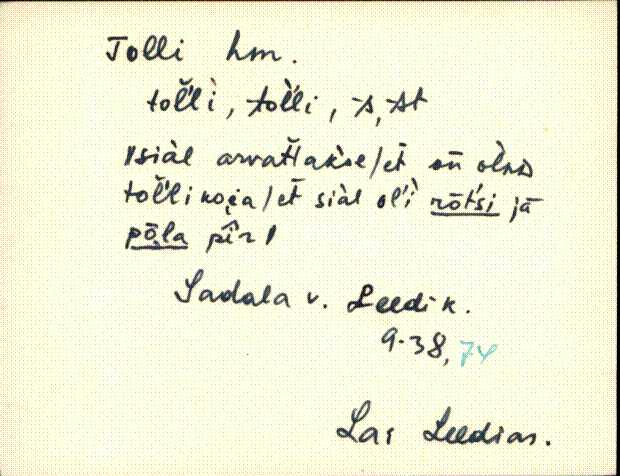 Tolli hm.
tol̆'l'ì, tòl'li, -s, -st
siàl arvattakse/et on òlnd
tol̆'l'i koea/et siàl ol'ì rōt́si jā
pōla pîr
Sadala v. Leedi k.
9.38, 74
Lai Leedias.